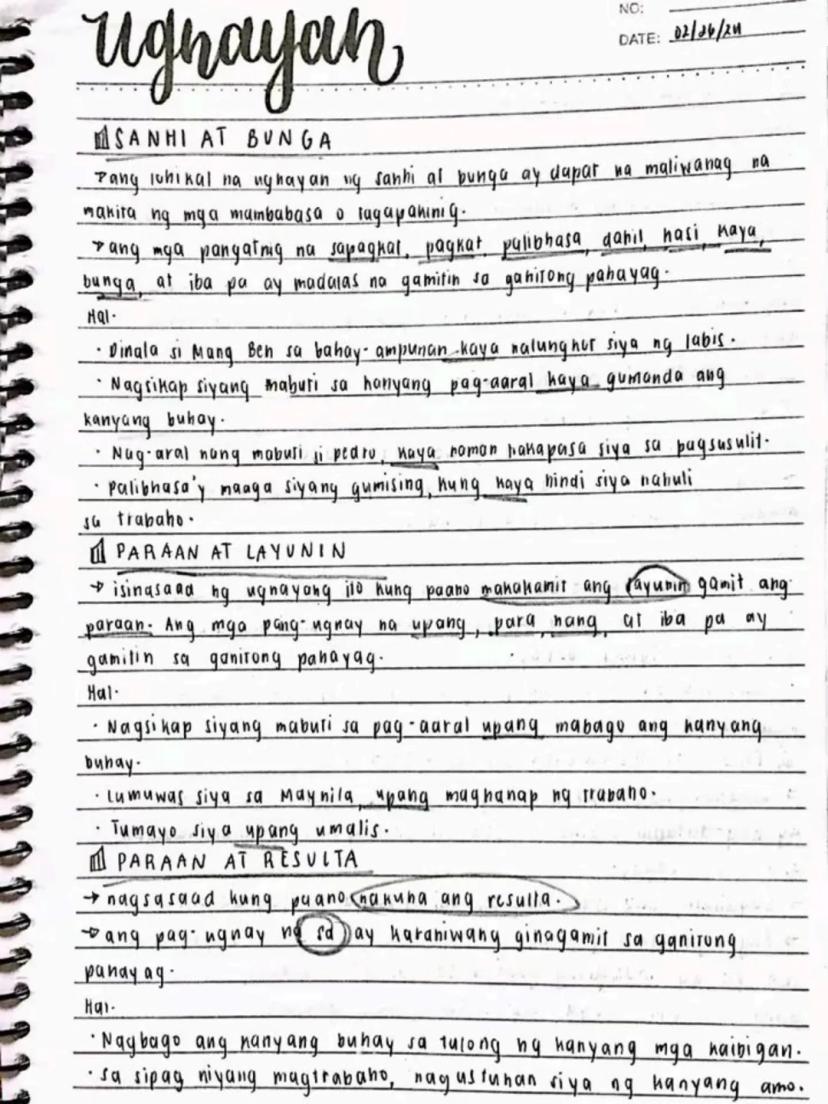 NO:
ugnayan
DATE: 02/26/24
SANHI AT BUNGA
→ang lohikal na ugnayan ng sanhi at bunga ay dapat na maliwanag na
makita ng mga mambabasa o tagapakinig.
→ang mga pangatnig na sapagkat, pagkat, palibhasa, dahil, kasi kaya,
bunga, at iba pa ay madalas na gamitin sa ganitong pahayag.
Hal.
· Dinala si Mang Ben sa bahay-ampunan kaya nalungkot siya ng labis.
· Nagsikap siyang mabuti sa kanyang pag-aaral kaya gumanda ang
kanyang buhay.
· Nag-aral nang mabuti si pedro, kaya naman nakapasa siya sa pagsusulit.
· palibhasa'y maaga siyang gumising, kung kaya hindi siya nahuli
sa trabaho.
PARAAN AT LAYUNIN
→ isinasaad ng ugnayang ito kung paano makakamit ang layunin gamit ang
paraan. Ang mga pang-ugnay na upang, para, nang, at iba pa ay
gamitin sa ganitong pahayag.
Hal.
· Nagsikap siyang mabuti sa pag-aaral upang mabago ang kanyang
buhay.
· Lumuwas siya sa Maynila, upang maghanap ng trabaho.
· Tumayo siya upang umalis.
PARAAN AT RESULTA
→ nagsasaad kung paano nakuha ang resulta.
→ ang pag-ugnay na sa ay karaniwang ginagamit sa ganitong
pahayag.
Hal.
· Nagbago ang kanyang buhay sa tulong ng kanyang mga kaibigan.
· sa sipag niyang magtrabaho, nagustuhan siya ng kanyang amo.